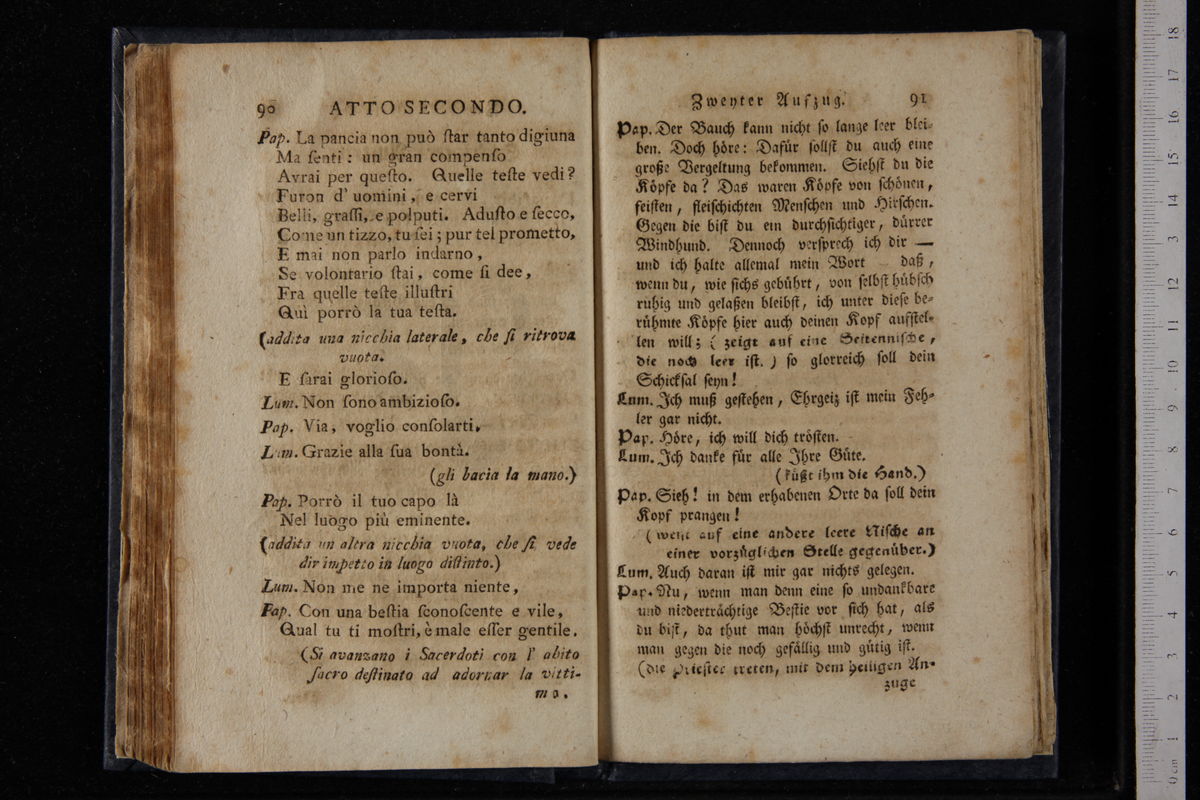 90 ATTO SECONDO.
Pap. La pancia non può ſtar tanto digiuna
Ma ſenti: un gran compenſo
Avrai per queſto. Quelle teſte vedi?
Furon d' uomini, e cervi
Belli, graſſi, e polputi. Aduſto e ſecco,
Come un tizzo, tu ſei; pur tel prometto,
E mai non parlo indarno,
Se volontario ſtai, come ſi dee,
Fra quelle teſte illuſtri
Quì porrò la tua teſta.
(addita una nicchia laterale, che ſi ritrova
vuota.
E ſarai glorioſo.
Lum. Non ſono ambizioſo.
Pap. Via, voglio conſolarti,
Lum. Grazie alla ſua bontà.
(gli bacia la mano.)
Pap. Porrò il tuo capo là
Nel luogo più eminente.
(addita un altra nicchia vuota, che ſi vede
dirimpetto in luogo diſtinto.)
Lum. Non me ne importa niente,
Pap. Con una beſtia ſconoſcente e vile,
Qual tu ti moſtri, è male eſſer gentile.
(Si avanzano i Sacerdoti con l' abito
ſacro deſtinato ad adornar la vitti-
ma.
Zweyter Aufzug. 91
Pap. Der Bauch kann nicht ſo lange leer blei-
ben. Doch höre: Dafür ſollſt du auch eine
große Vergeltung bekommen. Siehſt du die
Köpfe da? Das waren Köpfe von ſchönen,
feiſten, fleiſchichten Menſchen und Hirſchen.
Gegen die biſt du ein durchſichtiger, dürrer
Windhund. Dennoch verſprech ich dir —
und ich halte allemal mein Wort daß,
wenn du, wie ſichs gebührt, von ſelbſt hübſch
ruhig und gelaßen bleibſt, ich unter dieſe be-
rühmte Köpfe hier auch deinen Kopf aufſtel-
len will; (zeigt auf eine Seitenniſche,
die noch leer iſt.) ſo glorreich ſoll dein
Schickſal ſeyn!
Lum. Ich muß geſtehen, Ehrgeiz iſt mein Feh-
ler gar nicht.
Pap. Höre, ich will dich tröſten.
Lum. Ich danke für alle Ihre Güte.
(küßt ihm die Hand.)
Pap. Sieh! in dem erhabenen Orte da ſoll dein
Kopf prangen!
(weiſt auf eine andere leere Niſche an
einer vorzüglichen Stelle gegenüber.)
Lum. Auch daran iſt mir gar nichts gelegen.
Pap. Nu, wenn man denn eine ſo undankbare
und niederträchtige Beſtie vor ſich hat, als
du biſt, da thut man höchſt unrecht, wenn
man gegen die noch gefällig und gütig iſt.
(die Prieſter treten, mit dem heiligen An-
zuge
0 cm 1 2 3 4 5 6 7 8 9 10 11 12 13 14 15 16 17 18